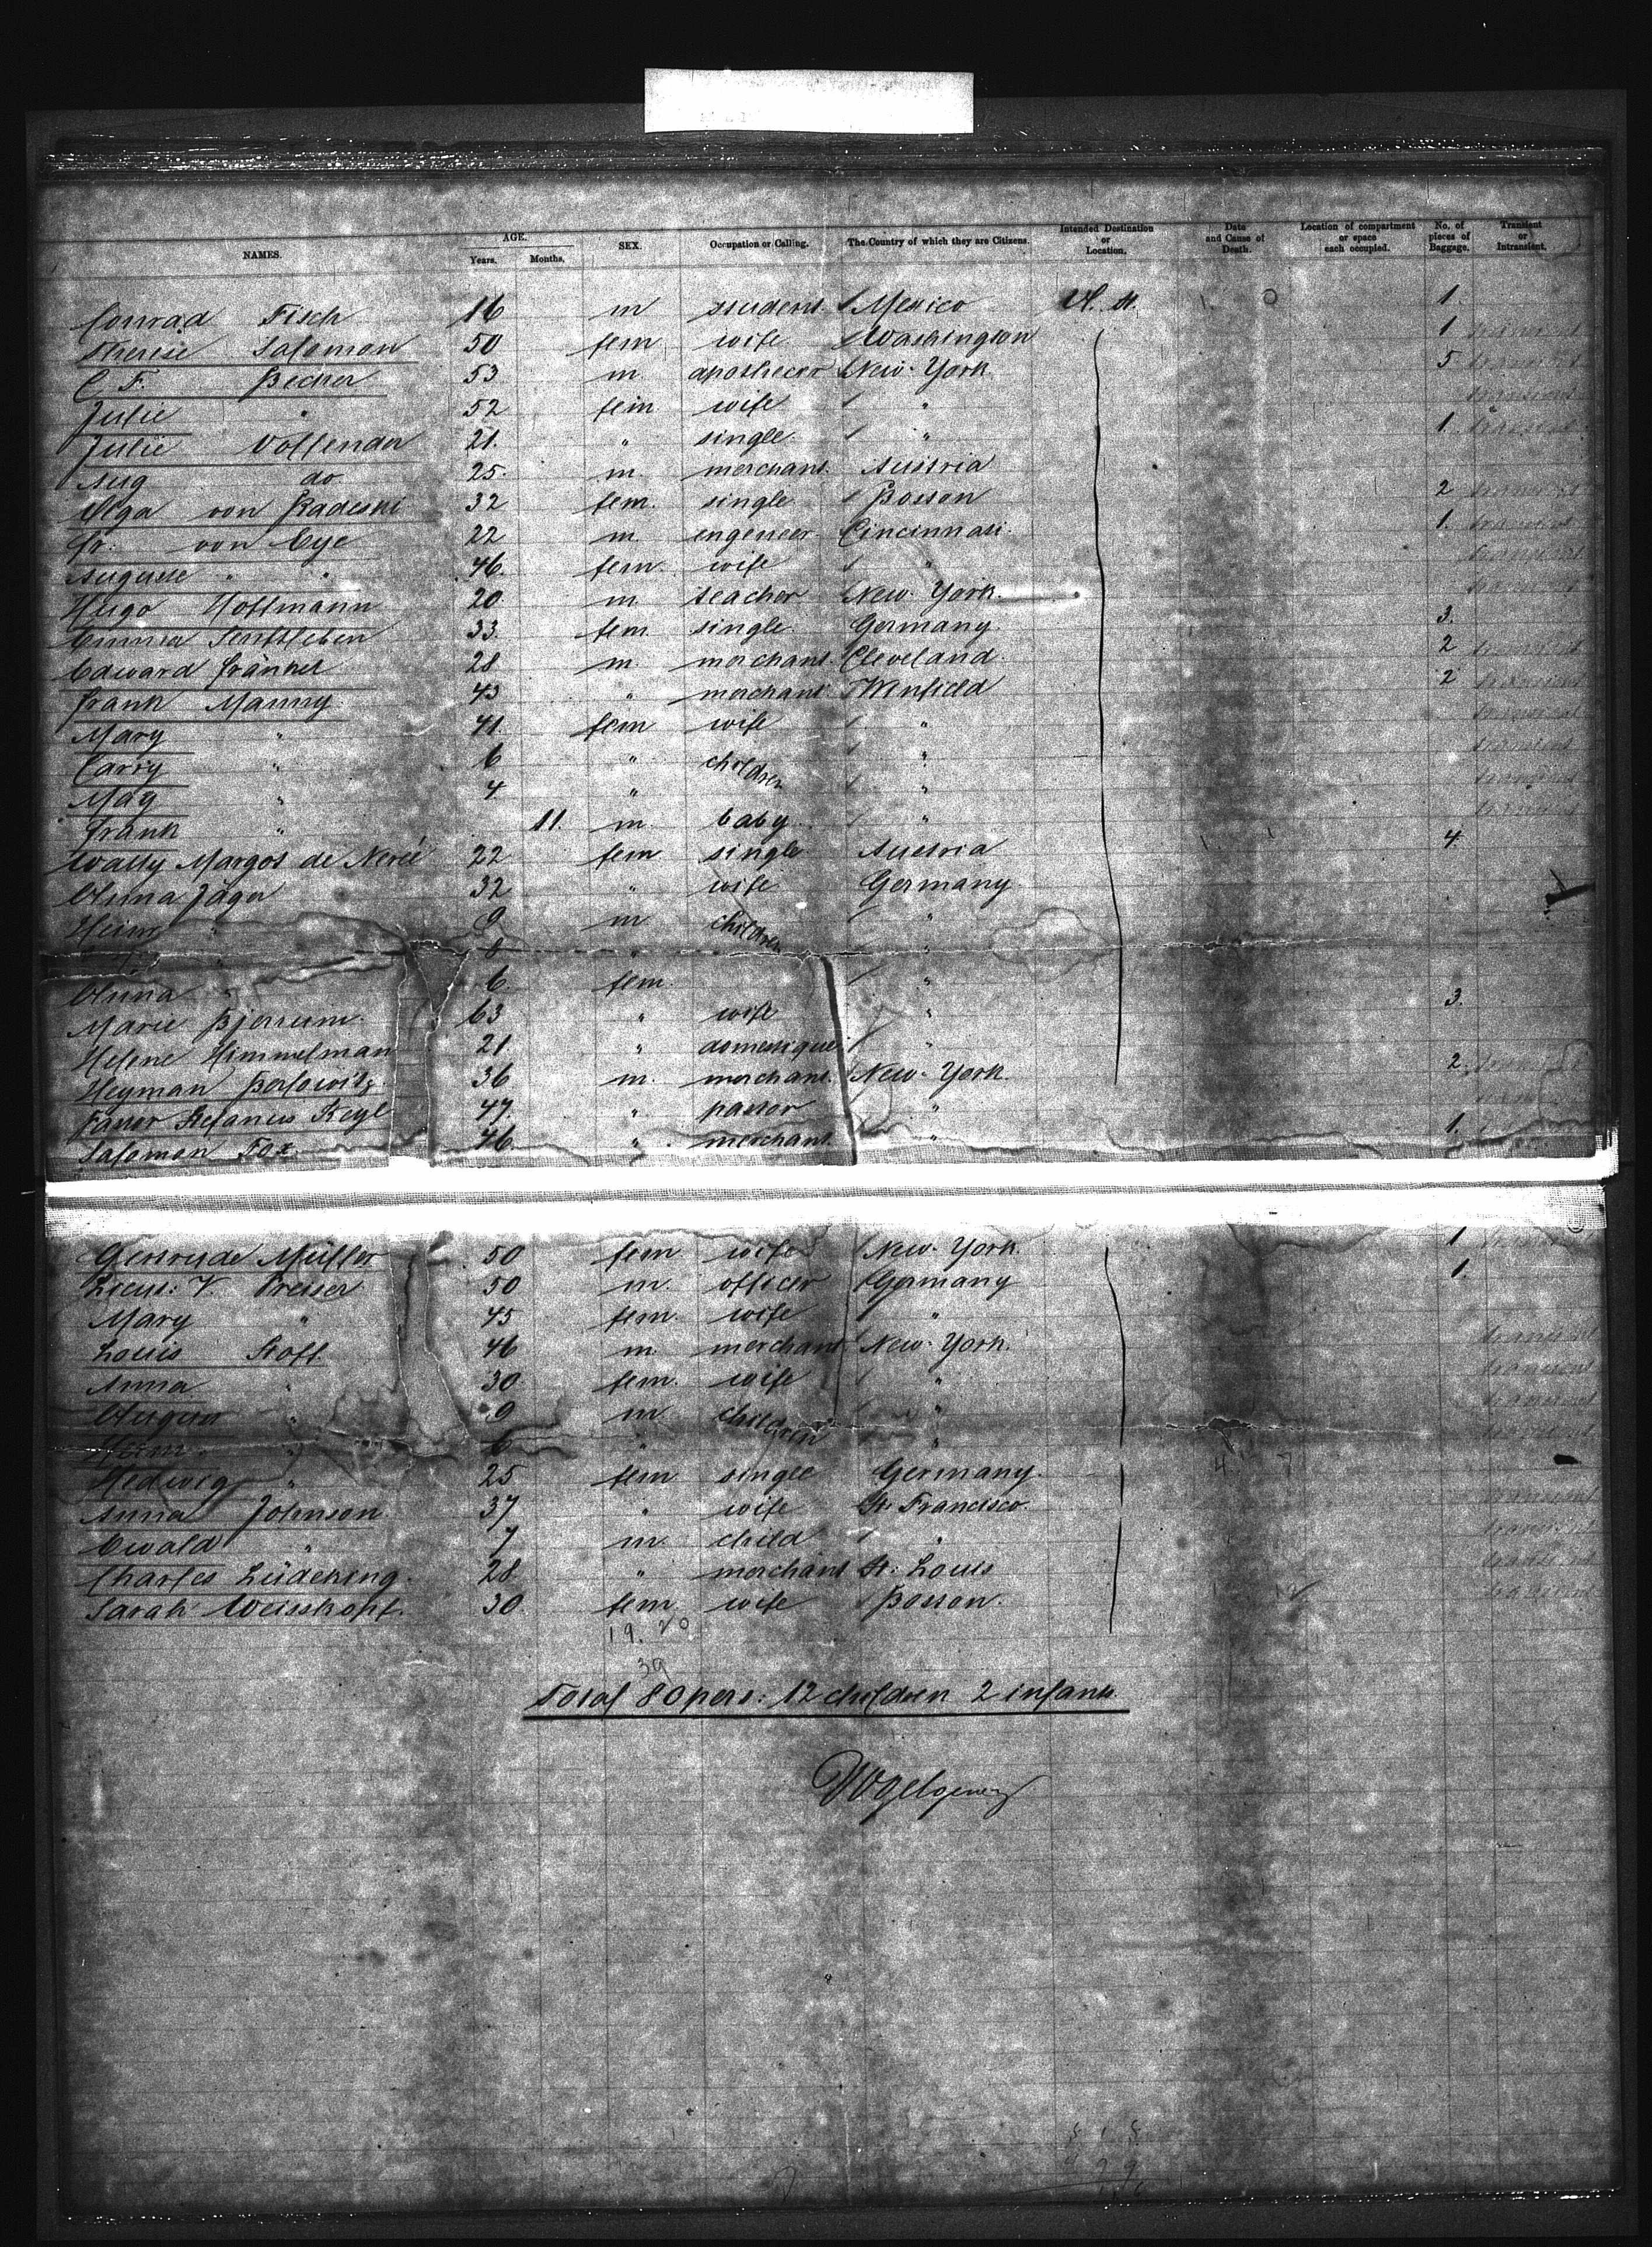 NAMES. AGE. Years. Months. SEX. Occupation or Calling. The Country of which they are Citizens. Intended Destination or Location. Date and Cause of Death. Location of compartment or space each occupied. No. of pieces of Baggage. Transient or Intransient.
Conrad Fisch 16 m student Mexico U. St. 1.
Therese Salomon 50 fem wife Washington 1 transient
C. F. Becker 53 m. apothecer New-York 5 transient
Julie " 52 fem wife " transient
Julie Vollender 21. " single. " 1. transient
Aug do 25. m. merchant. Austria
Olga von Radeski 32 fem. single Boston 2 transient
Fr. von Eye 22 m engeneer Cincinnati. 1. transient
Auguste " " 46. fem. wife " transient
Hugo Hoffmann 20. m. teacher New-York. transient
Emma Senftleben 33. fem. single. Germany. 3.
Edward Fränkel 28 m. merchant. Cleveland. 2 transient
Frank Manny 43 " merchant Winfield 2 transient
Mary " 41. fem wife " transient
Carry " 6 " children " transient
May " 4 " " transient
Frank " 11. m. baby " transient
Wally Margot de Nerée 22 fem single Austria 4.
Anna Jäger 32 " wife Germany
Heinr " 9 m children "
" 8 " "
Anna " 6. fem. "
Marie Bjerrum 63 " wife " 3.
Helene Himmelman 21 " domestique "
Heyman Berlowitz. 36 m. merchant. New-York. 2. transient
Pastor Stefanus Keyl 47. " pastor "
Salomon Fox 46. " merchant. " 1.
Gertrude Müller 50 fem wife New-York. 1 transient
Lieut: V. Preiser 50 m. officer Germany 1.
Mary " 45 fem. wife "
Louis Stoff. 46 m. merchant New-York. transient
Anna " 30. fem. wife " transient
August " 9 m children " transient
Herm. " 6 " " transient
Hedwig " 25 fem single Germany.
Anna Johnson 37 " wife St. Francisco transient
Ewald " 7 m. child " transient
Charles Lüdeking. 28 " merchant St. Louis transient
Sarah Weisskopf. 30. fem. wife Boston. transient
19. 20
39
Total 80 pers: 12 children 2 infants.